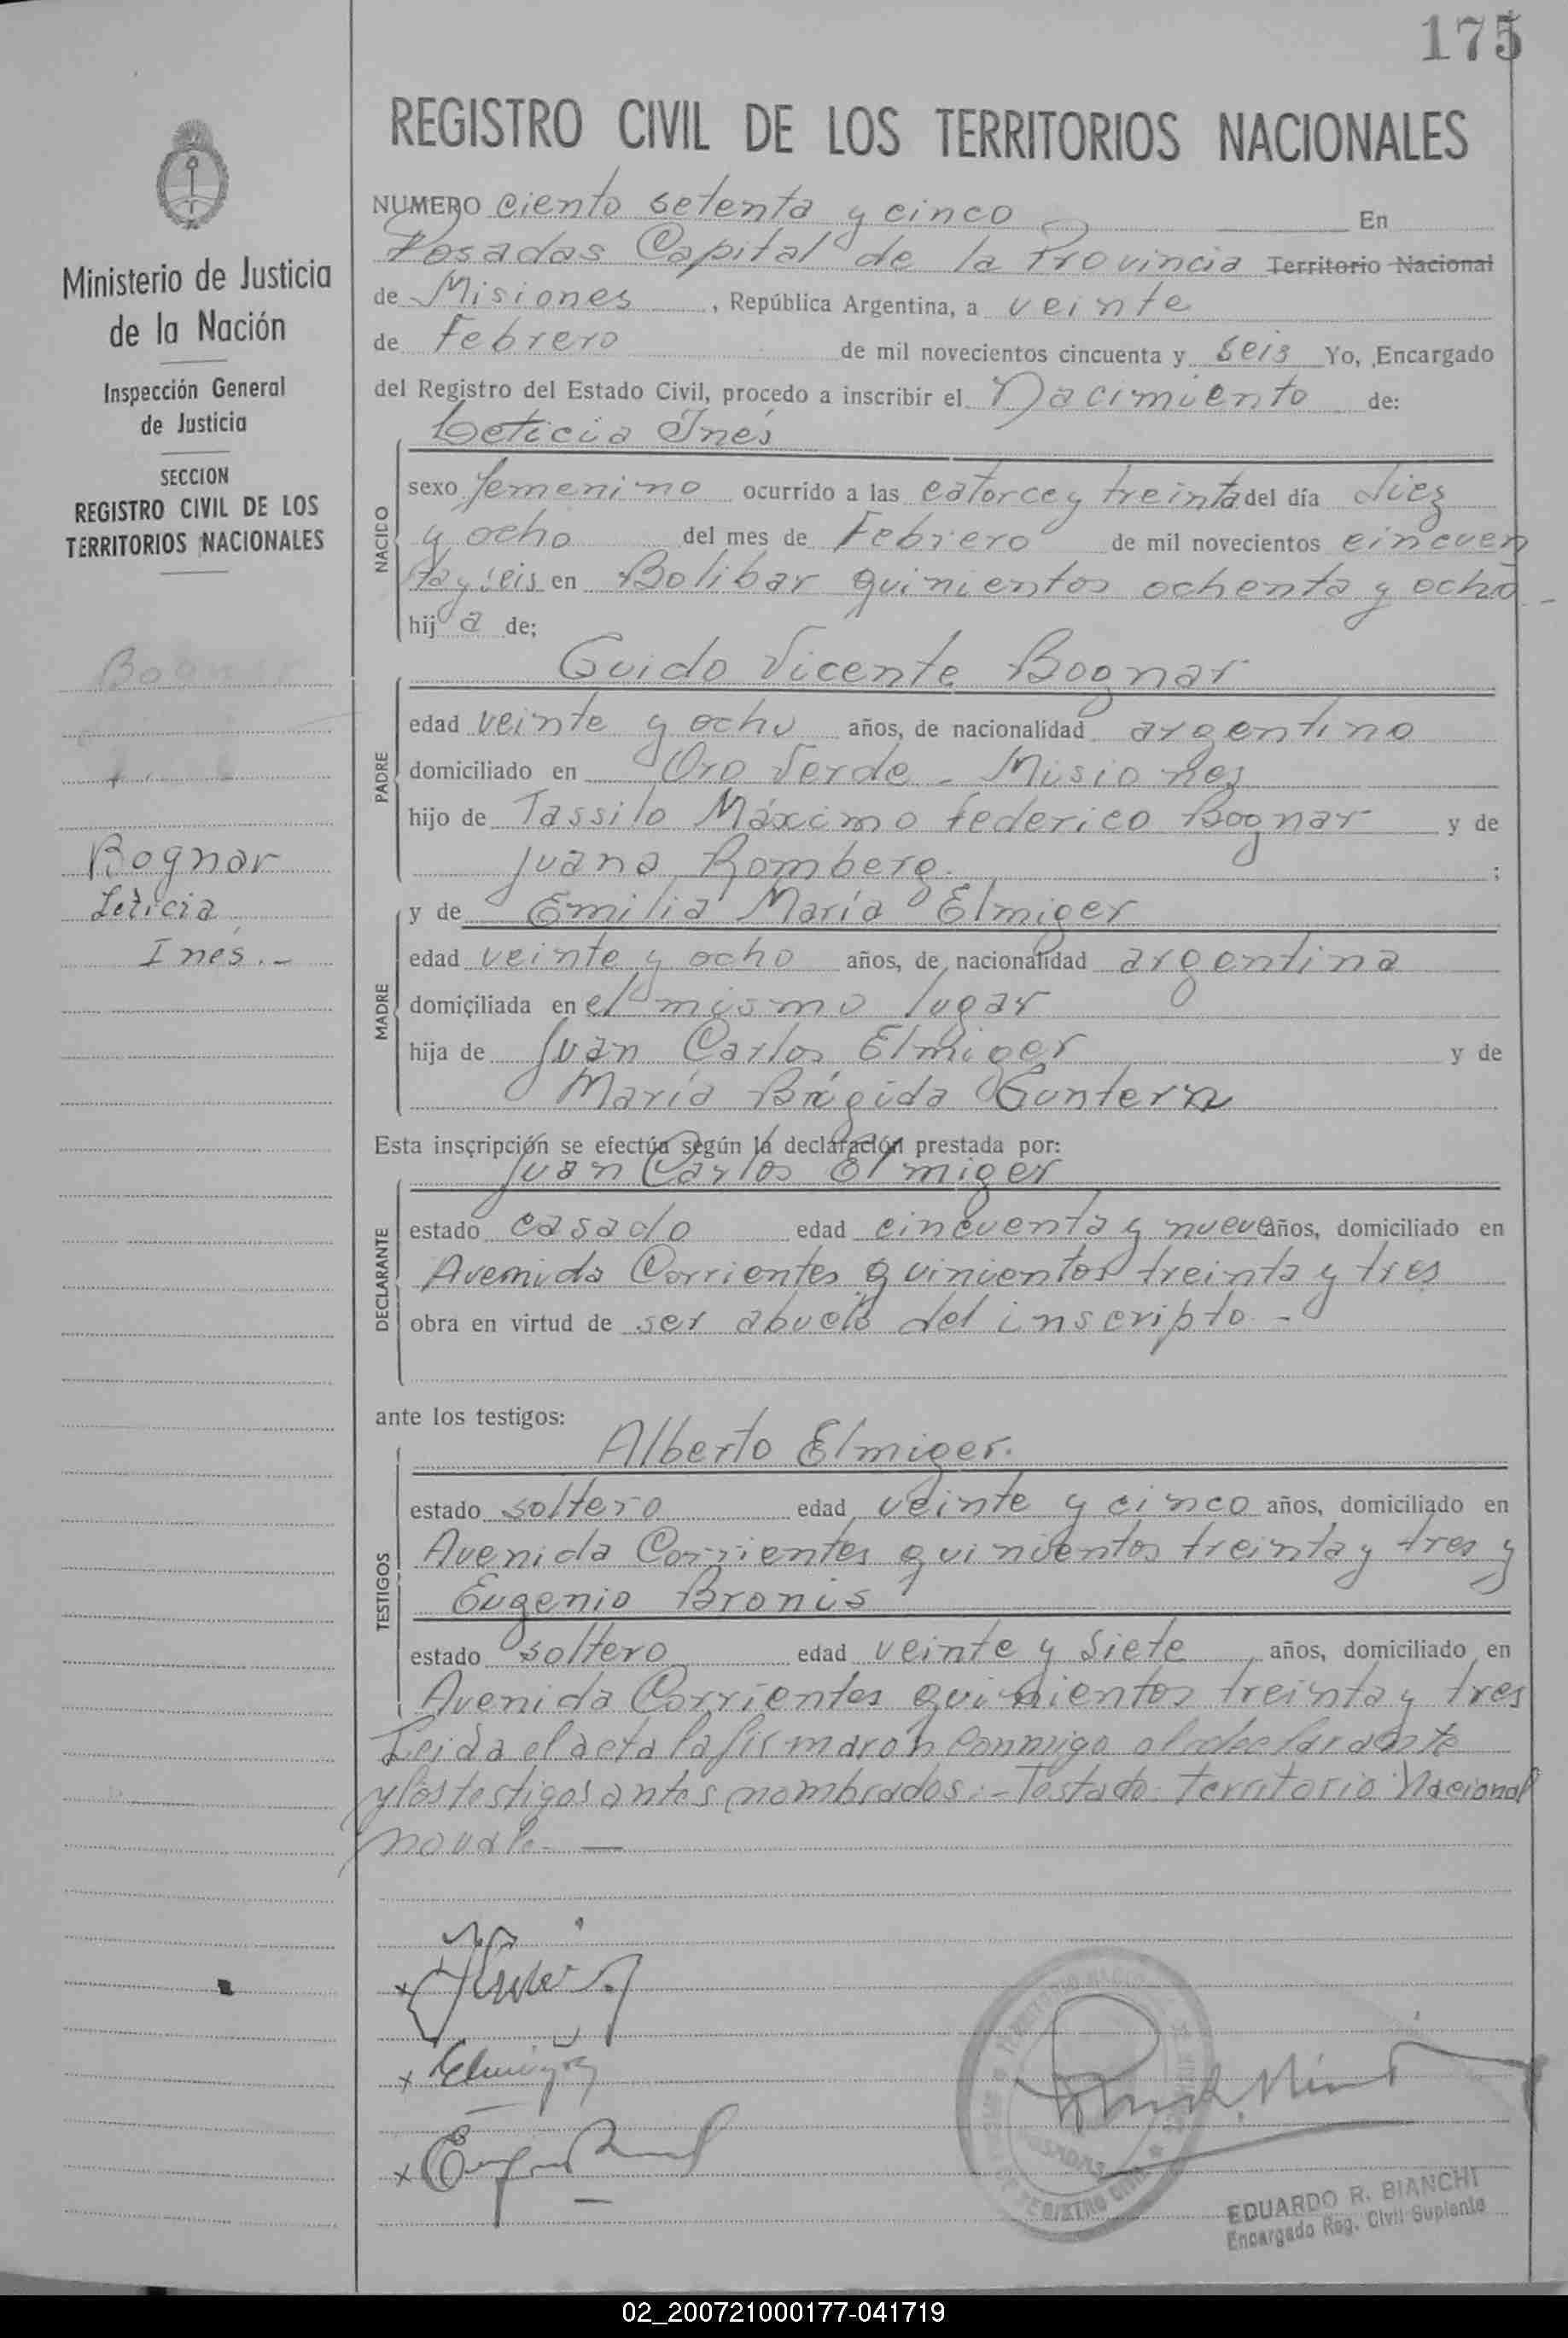 175
REGISTRO CIVIL DE LOS TERRITORIOS NACIONALES
Ministerio de Justicia
de la Nación
Inspección General
de Justicia
SECCION
REGISTRO CIVIL DE LOS
TERRITORIOS NACIONALES
Bognar
Bognar
Leticia
Inés.-
NUMERO ciento setenta y cinco En
Posadas Capital de la Provincia Territorio Nacional
de Misiones, República Argentina, a veinte
de Febrero de mil novecientos cincuenta y seis Yo, Encargado
del Registro del Estado Civil, procedo a inscribir el Nacimiento de:
NACIDO
Leticia Inés
sexo femenino ocurrido a las catorce y treinta del día diez
y ocho del mes de Febrero de mil novecientos cincuen
ta y seis en Bolibar quinientos ochenta y ocho -
hij a de;
PADRE
Guido Vicente Bognar
edad veinte y ocho años, de nacionalidad argentino
domiciliado en Oro Verde - Misiones
hijo de Tassilo Máximo Federico Bognar y de
Juana Romberg. ;
MADRE
y de Emilia María Elmiger
edad veinte y ocho años, de nacionalidad argentina
domiciliada en el mismo lugar
hija de Juan Carlos Elmiger y de
María Brígida Guntern
Esta inscripción se efectúa según la declaración prestada por:
DECLARANTE
Juan Carlos Elmiger
estado casado edad cincuenta y nueve años, domiciliado en
Avenida Corrientes quinientos treinta y tres
obra en virtud de ser abuelo del inscripto -
ante los testigos:
TESTIGOS
Alberto Elmiger.
estado soltero edad veinte y cinco años, domiciliado en
Avenida Corrientes quinientos treinta y tres y
Eugenio Bronis
estado soltero edad veinte y siete años, domiciliado en
Avenida Corrientes quinientos treinta y tres
Leida el acta la firmaron conmigo el declarante
y los testigos antes nombrados:- Testado: Territorio Nacional
no vale. —
x
x Elmiger
x
POSADAS
REGISTRO CIVIL
EDUARDO R. BIANCHI
Encargado Reg. Civil Suplente
02_200721000177-041719